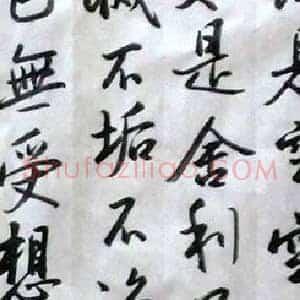 是空空
是舍利
滅不垢不淨
色無受想
shufaziliao.COM